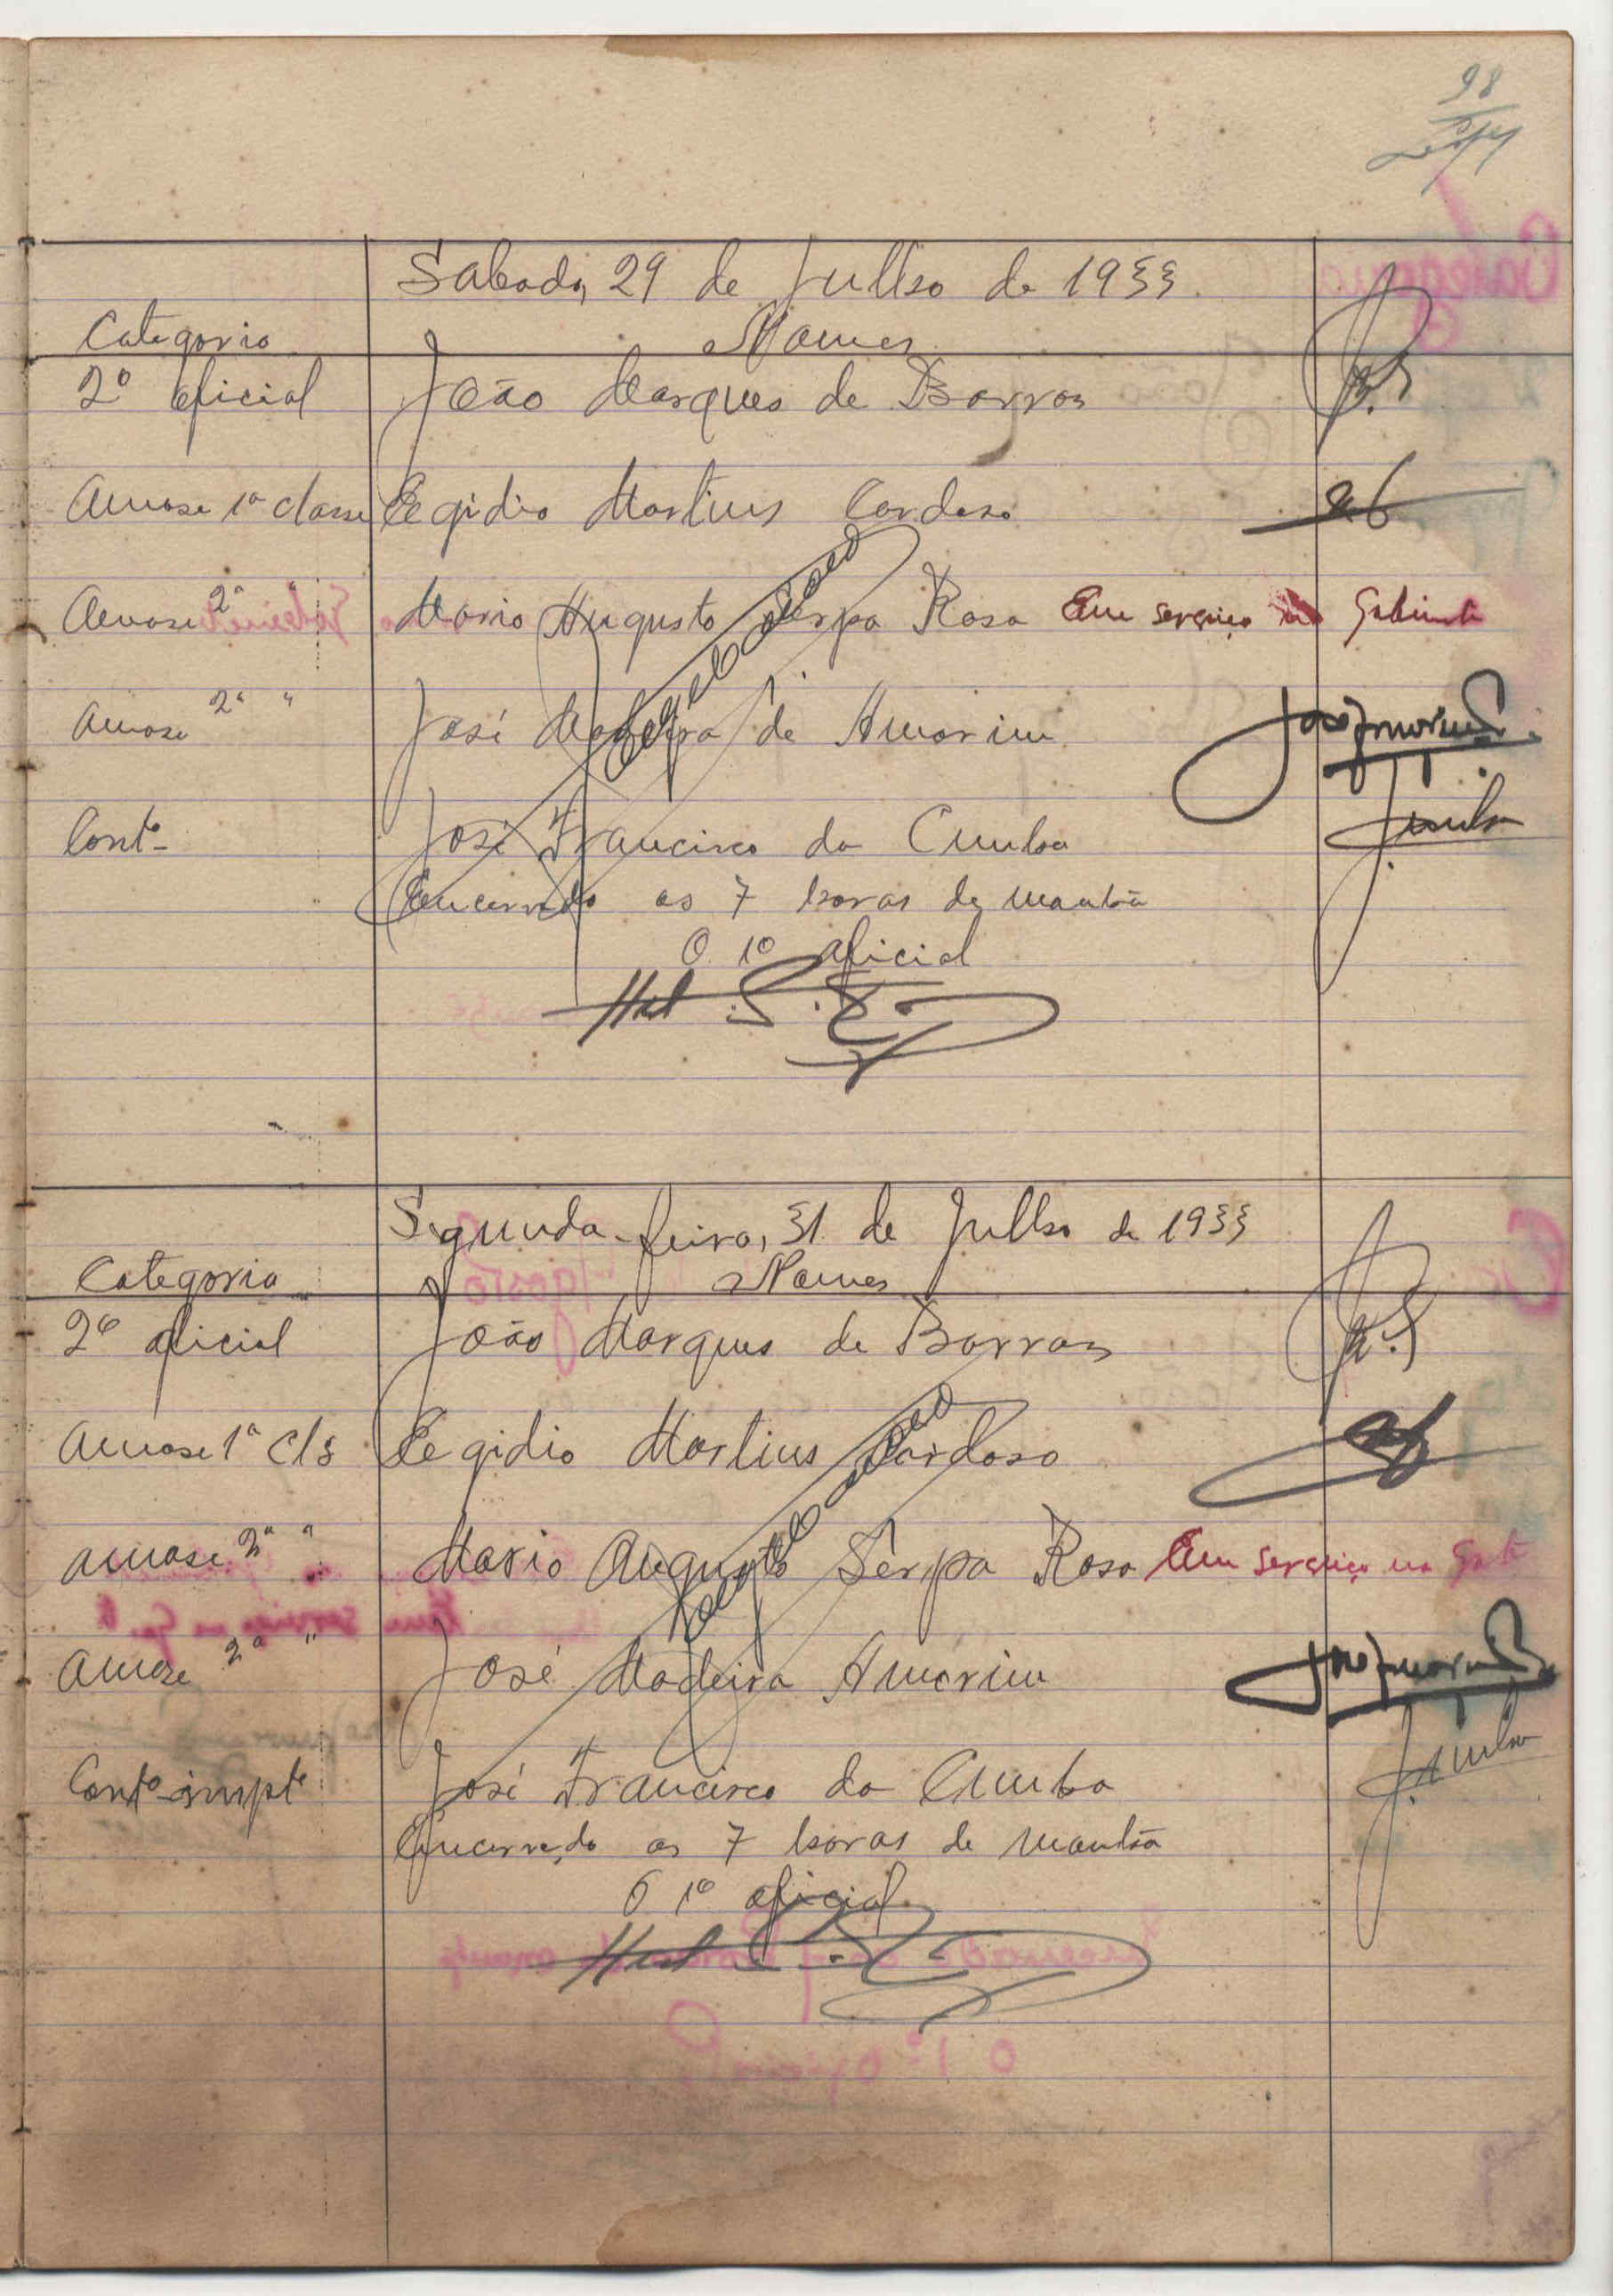 98
Sabado, 29 de Julho de 1933
Categoria Nomes
2º oficial João Marques de Barros
Amase 1ª classe Egidio Martins Cardoso
Amase 2ª " Mario Augusto Serpa Rosa Em serviço no Gabinete
Amase 2ª " José Madeira de Amorim
Contº José Francisco da Cunha
Encerrado as 7 horas da manhã
O 1º oficial
Segunda-feira, 31 de Julho de 1933
Categoria Nomes
2º oficial João Marques de Barros
Amase 1ª cls Egidio Martins Cardoso
Amase 2ª " Mario Augusto Serpa Rosa Em serviço no Gabt
Amase 2ª " José Madeira Amorim
Contº impte José Francisco da Cunha
Encerrado as 7 horas de manhã
O 1º oficial